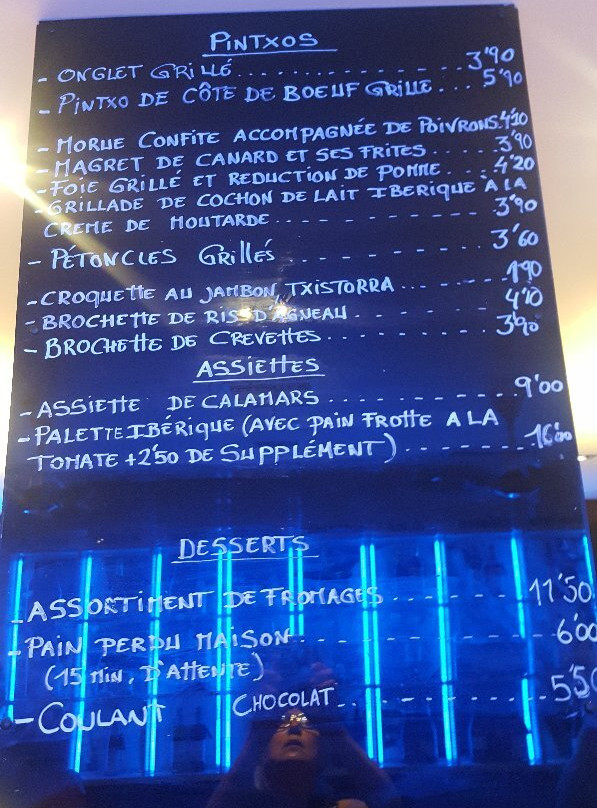 PINTXOS
- ONGLET GRILLÉ............3'90
- PINTXO DE CÔTE DE BOEUF GRILLE...5'90
- MORUE CONFITE ACCOMPAGNÉE DE POIVRONS.4'10
- MAGRET DE CANARD ET SES FRITES......3'90
- FOIE GRILLÉ ET REDUCTION DE POMME....4'20
- GRILLADE DE COCHON DE LAIT IBERIQUE À LA
CREME DE MOUTARDE............3'90
- PÉTONCLES GRILLÉS............3'60
- CROQUETTE AU JAMBON, TXISTORRA......1'90
- BROCHETTE DE RIS D'AGNEAU.......4'10
- BROCHETTE DE CREVETTES.........3'90
ASSIETTES
- ASSIETTE DE CALAMARS............9'00
- PALETTE IBÉRIQUE (AVEC PAIN FROTTE A LA
TOMATE +2'50 DE SUPPLÉMENT).......16'00
DESSERTS
- ASSORTIMENT DE FROMAGES.......11'50
- PAIN PERDU MAISON...........6'00
(15 MIN, D'ATTENTE)
- COULANT CHOCOLAT..........5'50